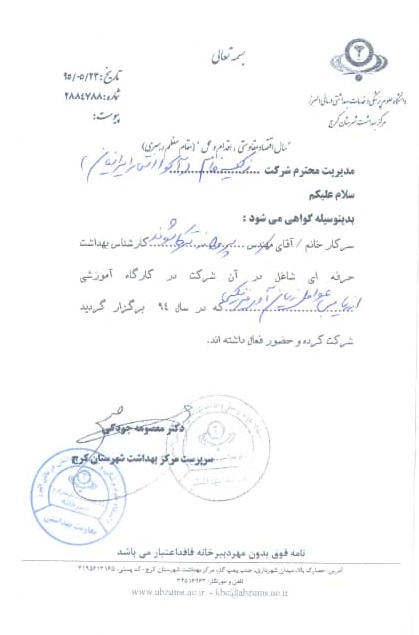 بسمه تعالی
دانشگاه علوم پزشکی و خدمات بهداشتی درمانی البرز
مرکز بهداشت شهرستان کرج
تاریخ: ۹۵/۰۵/۲۳
شماره: ۲۸۸۴۷۸۸
پیوست:
"سال اقتصاد مقاومتی ، اقدام و عمل" (مقام معظم رهبری)
مدیریت محترم شرکت
سلام علیکم
بدینوسیله گواهی می شود :
سرکار خانم / آقای مهندس کارشناس بهداشت
حرفه ای شاغل در آن شرکت در کارگاه آموزشی
ارزیابی عوامل زیان آور فیزیکی که در سال ۹۴ برگزار گردید
شرکت کرده و حضور فعال داشته اند.
دکتر معصومه جودکی
سرپرست مرکز بهداشت شهرستان کرج
معاونت بهداشتی
نامه فوق بدون مهر دبیرخانه فاقد اعتبار می باشد
آدرس: حصارک بالا، میدان شهرداری، جنب پمپ گاز، مرکز بهداشت شهرستان کرج - کد پستی: ۳۱۹۵۶۱۳۱۶۵
تلفن و دورنگار: ۳۴۵۱۴۹۶۳
www.abzums.ac.ir - kbc@abzums.ac.ir